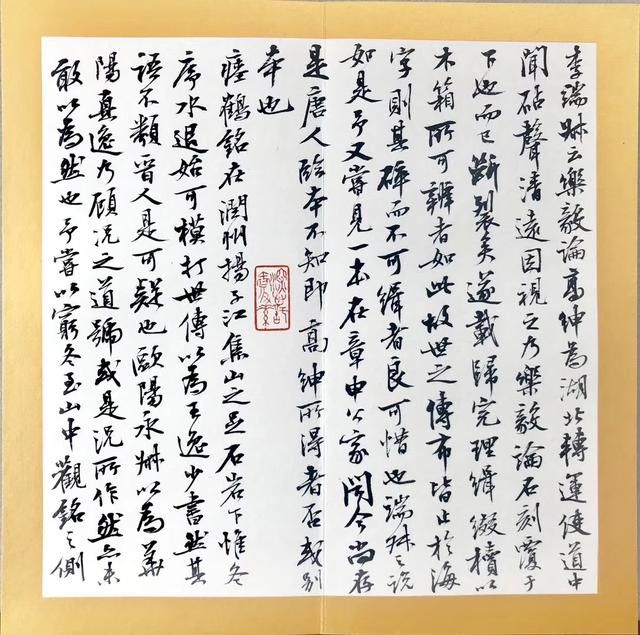 李瑞叔云樂毅論高紳為湖北轉運使道中
聞砧聲清遠因視之乃樂毅論石刻覆于
下也而已斷裂矣遂載歸完理緝綴櫝以
木箱所可辨者如此故世之傳布皆止於海
字則其碑而不可緝者良可惜也端叔之說
如是予又嘗見一本在章申公家聞今尚存
是唐人臨本不知即高紳所得者否或別
本也
瘞鶴銘在潤州揚子江焦山之足石岩下惟冬
序水退始可模打世傳以為王逸少書然其
語不類晉人是可疑也歐陽永叔以為華
陽真逸乃顧況之道號或是況所作然亦未
敢以為然也予嘗以窮冬至山中觀銘之側